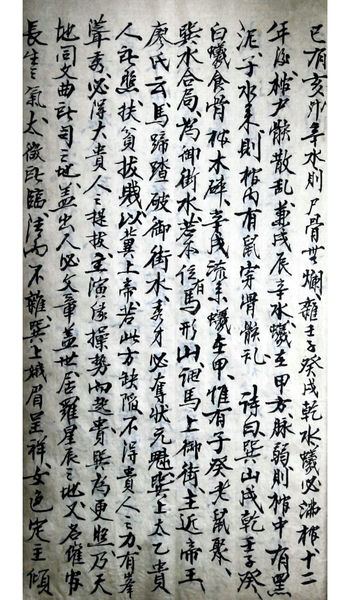 已有亥卯辛水則尸骨黃爛雜壬子癸戌乾水蟻必滿棺十二
年後棺尸骸散乱兼戌辰辛水蟻主甲方脉弱則棺中有黑
泥子水來則棺內有鼠穿骨骸乱 詩曰巽山戌乾壬子癸
白蟻食骨棺木碎辛戌流來蟻生甲惟有子癸老鼠聚
巽水合局為御街水若不信有馬形山謂馬上御街主近帝王
廖氏云馬蹄踏破御街水秀才必奪狀元魁巽上太乙貴
人所照扶貧拔賤以冀上帝若此方缺陷不得貴人之力有峯
聳秀必得大貴人之提拔主演儀操勢而起貴巽為更照乃天
地同文曲所司之地盖出人必文章盖世居羅星辰之地又名催官
長生之氣太微所臨清而不雜巽上娥眉呈祥女色定主傾